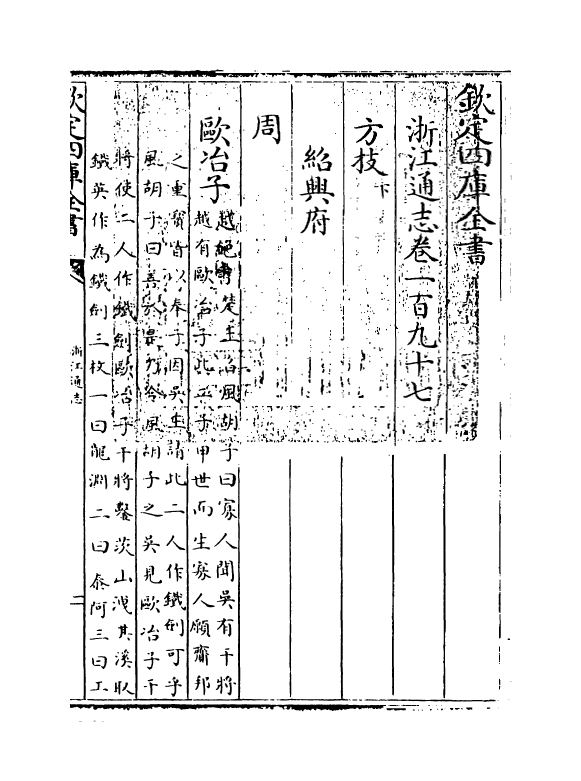 欽定四庫全書
浙江通志卷一百九十七
方技下
紹興府
周
歐冶子
越絕書楚王召風胡子曰寡人聞吳有干將
越有歐冶子此二子甲世而生寡人願齎邦
之重寶皆以奉子因吳王請此二人作鐵劍可乎
風胡子曰善於是乃令風胡子之吳見歐冶子干
將使二人作鐵劍歐冶子干將鑿茨山洩其溪取
鐵英作為鐵劍三枚一曰龍淵二曰泰阿三曰工
欽定四庫全書
浙江通志